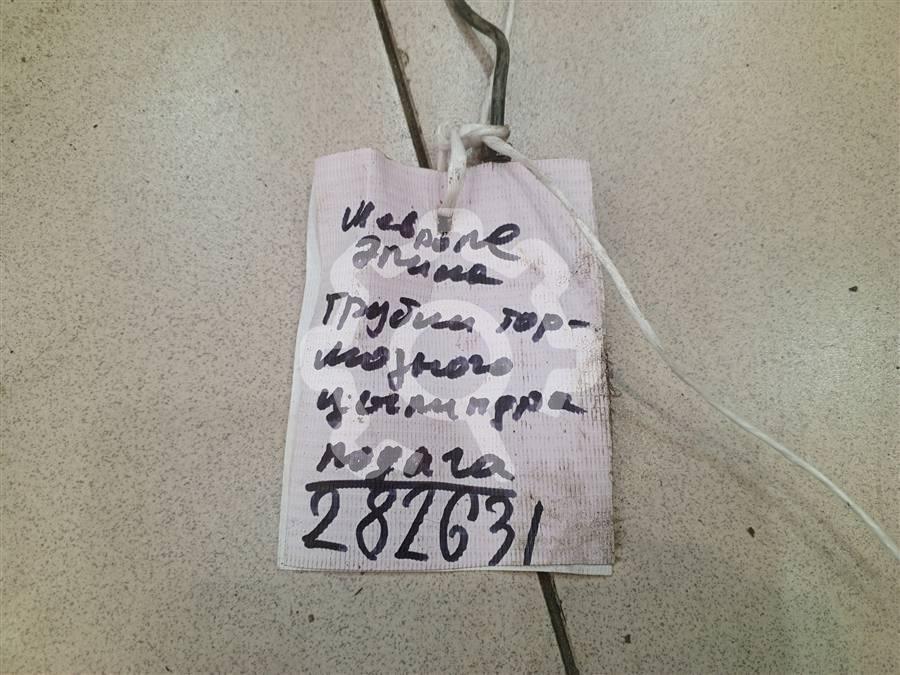 Шевроле
Эпика
Трубки тор-
мозного
цилиндра
подача
282631